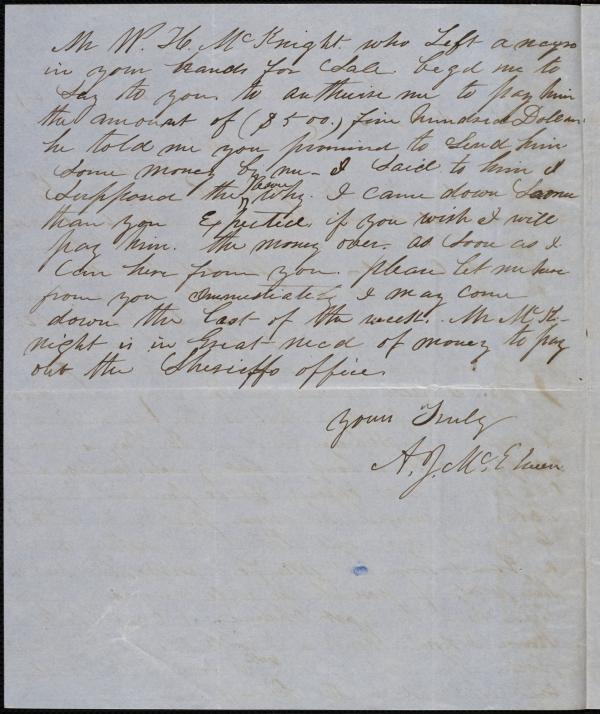 Mr W. H. McKnight who Left a negro
in your hands for Sale begd me to
Say to you to authurise me to pay him
the amount of ($500,) Five hundred Dollars
he told me you promised to Send him
Some money by me - I Said to him I
Supposed the reason why. I came down Sooner
than you Expected if you wish I will
pay him. the money over. as Soon as I
Can here from you please let me here
from you immediately I may come
down the Last of the week. Mr McK-
night is in Great need of money to pay
out the Sheriffs office
yours Truly
A. J. McElveen